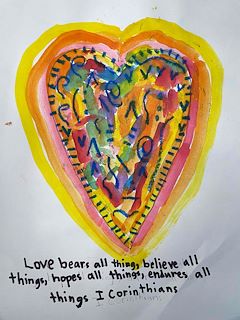 Love bears all thing, believe all
things, hopes all things, endures all
things I Corinthians